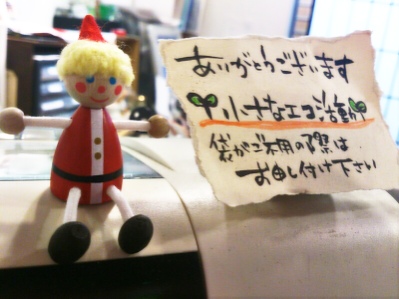 ありがとうございます
小さなエコ活動
袋がご不用の際は
お申し付け下さい